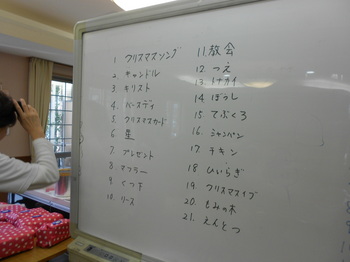 1 クリスマスソング
2. キャンドル
3 キリスト
4. バースディ
5. クリスマスカード
6. 星
7. プレゼント
8. マフラー
9. くつ下
10. リース
11. 教会
12. つえ
13. トナカイ
14 ぼうし
15 てぶくろ
16. シャンペン
17. チキン
18. ひいらぎ
19. クリスマスイブ
20. もみの木
21. えんとつ